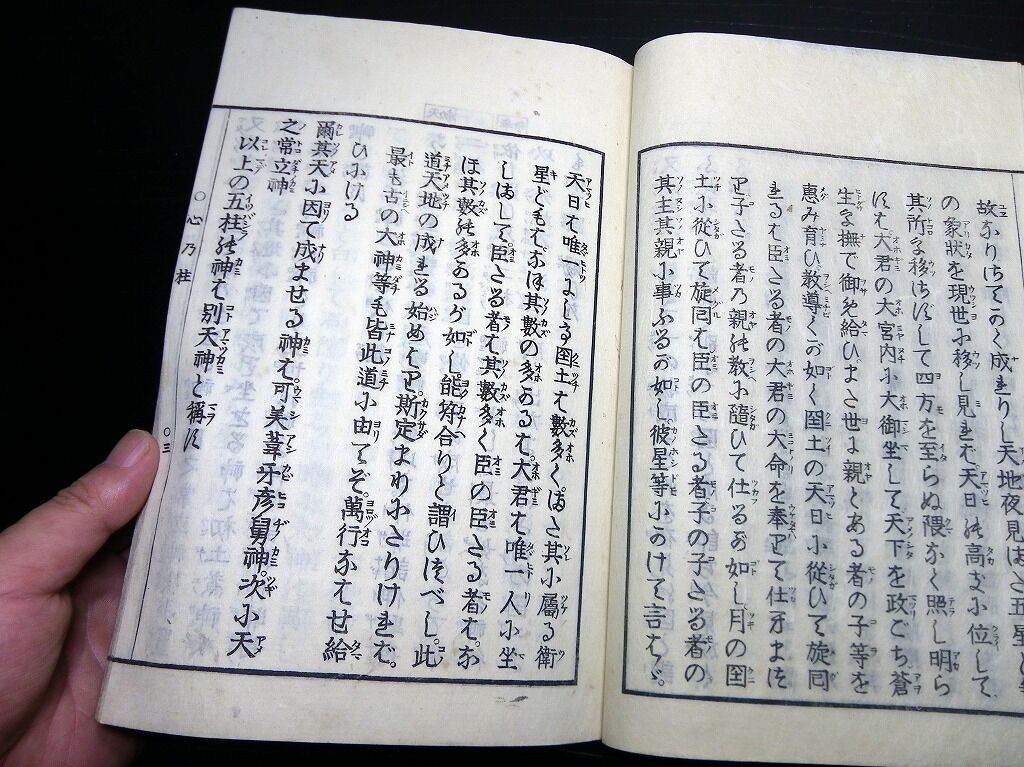 故なりかてかく成れりし天地夜見はた五星
の象状を現世に移し見れば天日能高く位して
其所を移らずして四方を至らぬ隈なく照し明ら
す大君の大宮内に大御坐して天下を政ごち蒼
生を撫で御給ひまた世に親とある者の子等を
恵み育ひ教導くが如く国土の天日に従ひて旋回
るは臣たる者の大君の大命を奉りて仕
子たる者乃親能教に随ひて仕るが如し月の国
土に従ひて旋回は臣の臣たる者子の子たる者の
其主其親に事ふるが如し彼星等にかけて言はゞ
天日は唯一にしる国土は数多くまた其に属る衛
星どもはなほ其数の多あるは大君は唯一人に坐
しまして臣たる者は其数多く臣の臣たる者はな
ほ其数能多あるが如し能符合りと謂ひつべし此
道天地の成れる始めより斯定まれりにたりければ
最も古の大神等も皆此道に由てぞ萬行なはせ給
ひにける
爾其天に因て成ませる神は可美葦牙彦舅神次に天
之常立神
以上の五柱能神は別天神と称す
○心乃柱
○三